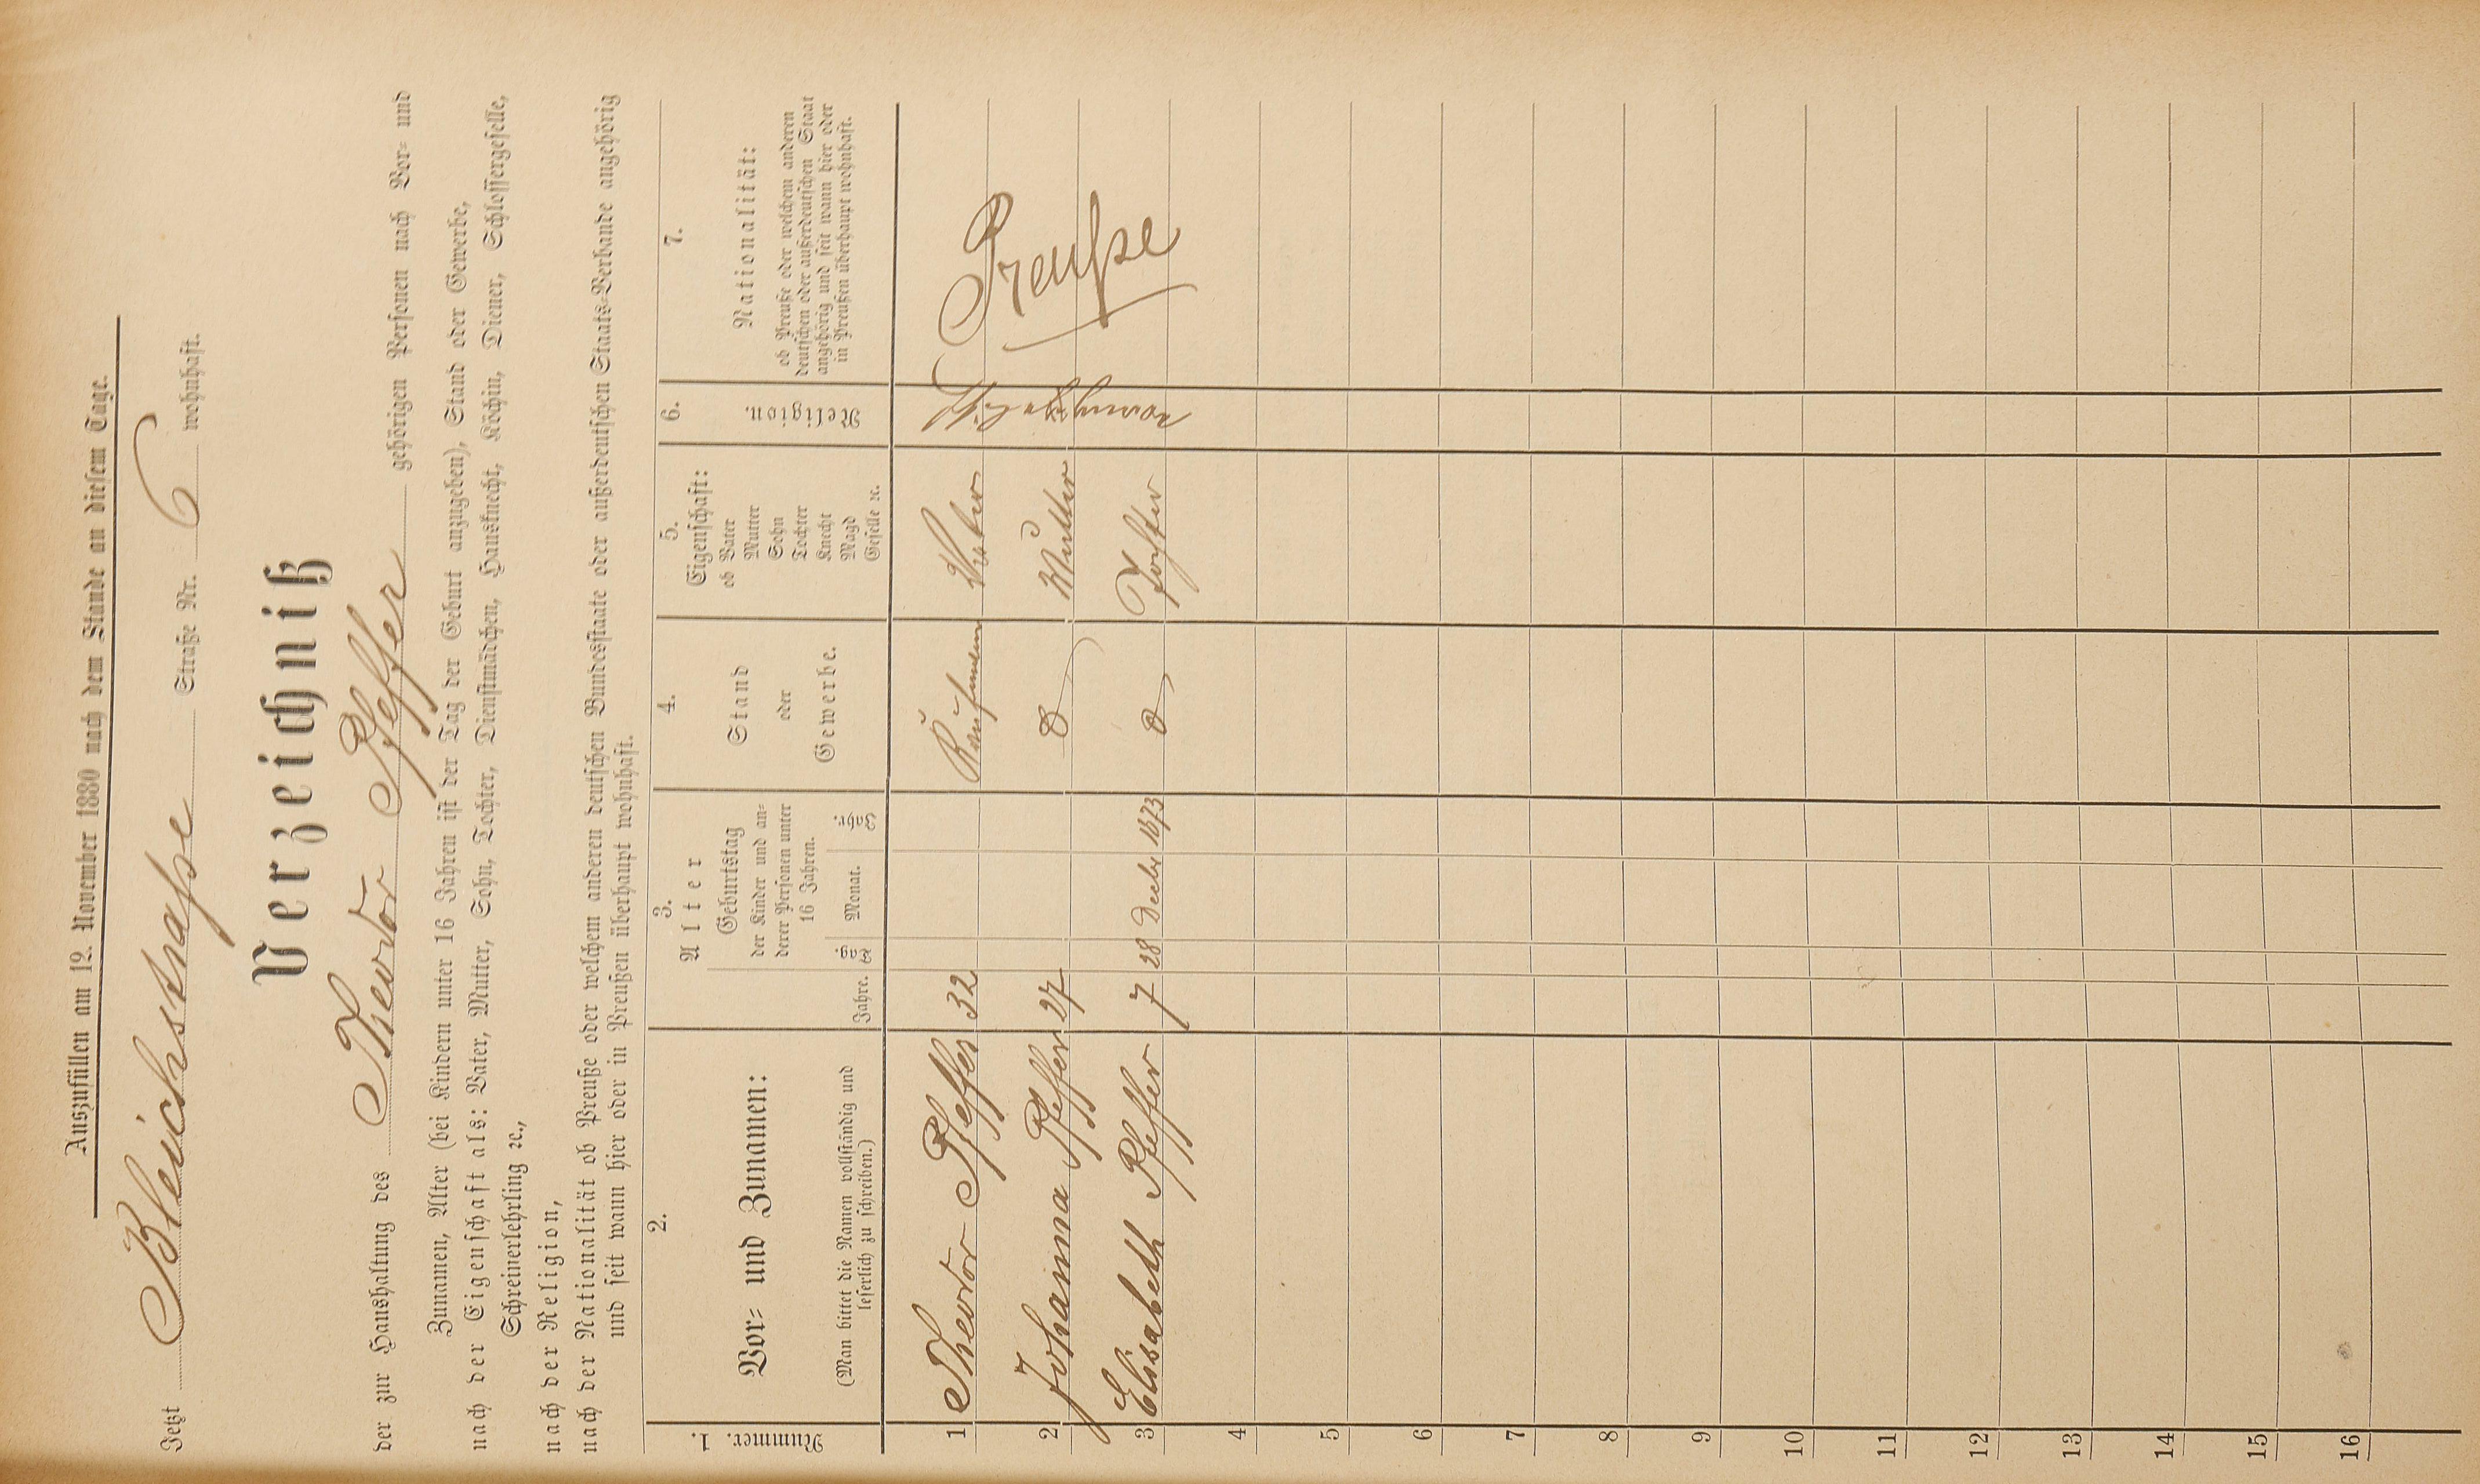 Auszufüllen am 12. November 1880 nach dem Stande an diesem Tage.
Jetzt Bleichstraße Straße Nr. 6 wohnhaft.
Verzeichniß
der zur Haushaltung des Theodor Pfeffer gehörigen Personen nach Vor- und
Zunamen, Alter (bei Kindern unter 16 Jahren ist der Tag der Geburt anzugeben), Stand oder Gewerbe,
nach der Eigenschaft als: Vater, Mutter, Sohn, Tochter, Dienstmädchen, Hausknecht, Köchin, Diener, Schlossergeselle,
Schreinerlehrling ꝛc.,
nach der Religion,
nach der Nationalität ob Preuße oder welchem anderen deutschen Bundesstaate oder außerdeutschen Staats-Verbande angehörig
und seit wann hier oder in Preußen überhaupt wohnhaft.
Nummer. 1.
2.
Vor- und Zunamen:
(Man bittet die Namen vollständig und
leserlich zu schreiben.)
3.
Alter
Jahre.
Geburtstag
der Kinder und an-
derer Personen unter
16 Jahren.
Tag
Monat.
Jahr.
4.
Stand
oder
Gewerbe.
5.
Eigenschaft:
ob Vater
Mutter
Sohn
Tochter
Knecht
Magd
Geselle ꝛc.
6.
Religion.
7.
Nationalität:
ob Preuße oder welchem anderen
deutschen oder außerdeutschen Staat
angehörig und seit wann hier oder
in Preußen überhaupt wohnhaft.
1 Theodor Pfeffer 32 Kaufmann Vater
2 Johanna Pfeffer 27 Mutter
3 Elisabeth Pfeffer 7 28 Decbr 1873 Tochter
Preuße
4
5
6
7
8
9
10
11
12
13
14
15
16